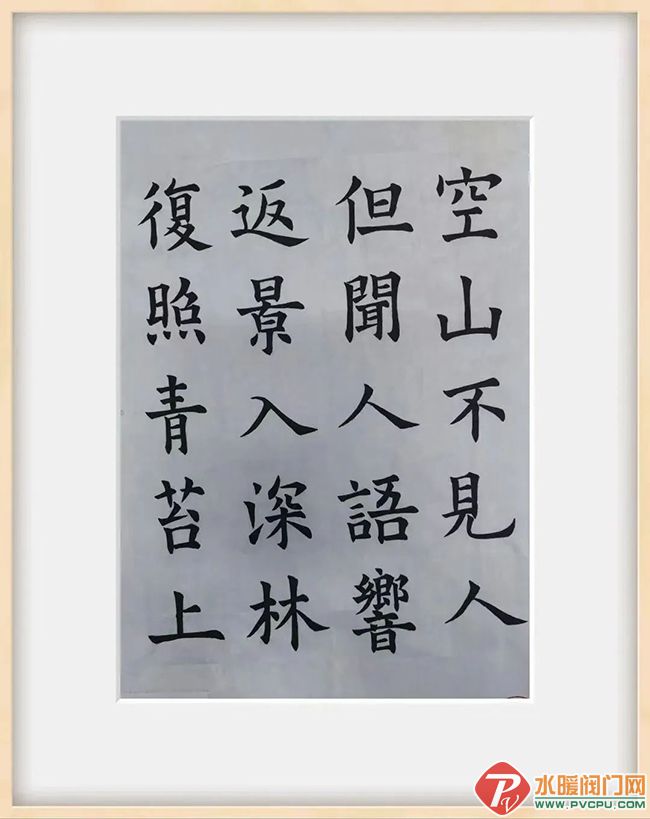 空山不見人
但聞人語響
返景入深林
復照青苔上
水暖阀门网
WWW.PVCPU.COM